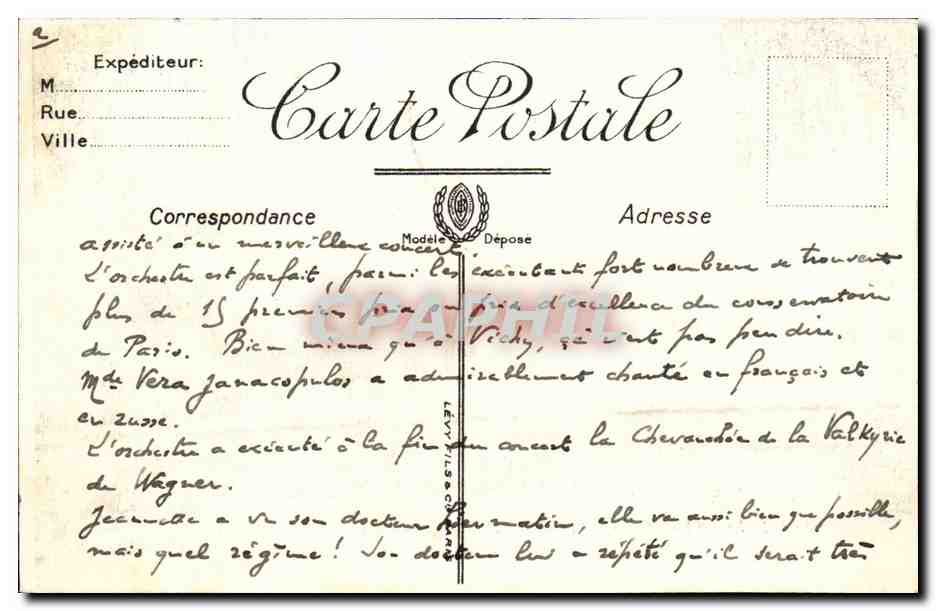 2
Expéditeur:
M
Rue
Ville
Carte Postale
Correspondance
Modèle Déposé
Adresse
assisté à un merveilleux concert.
L'orchestre est parfait, parmi les exécutants fort nombreux se trouvent
plus de 15 premiers prix ou prix d'excellence du conservatoire
de Paris. Bien mieux qu'à Vichy, ça n'est pas peu dire.
Mde Vera Janacopulos a admirablement chanté en français et
en russe.
L'orchestre a exécuté à la fin du concert la Chevauchée de la Valkyrie
de Wagner.
Jeannette a vu son docteur hier matin, elle va aussi bien que possible,
mais quel régime! Son docteur lui a répété qu'il serait très
LÉVY FILS & C° PARIS
CPAPHIL